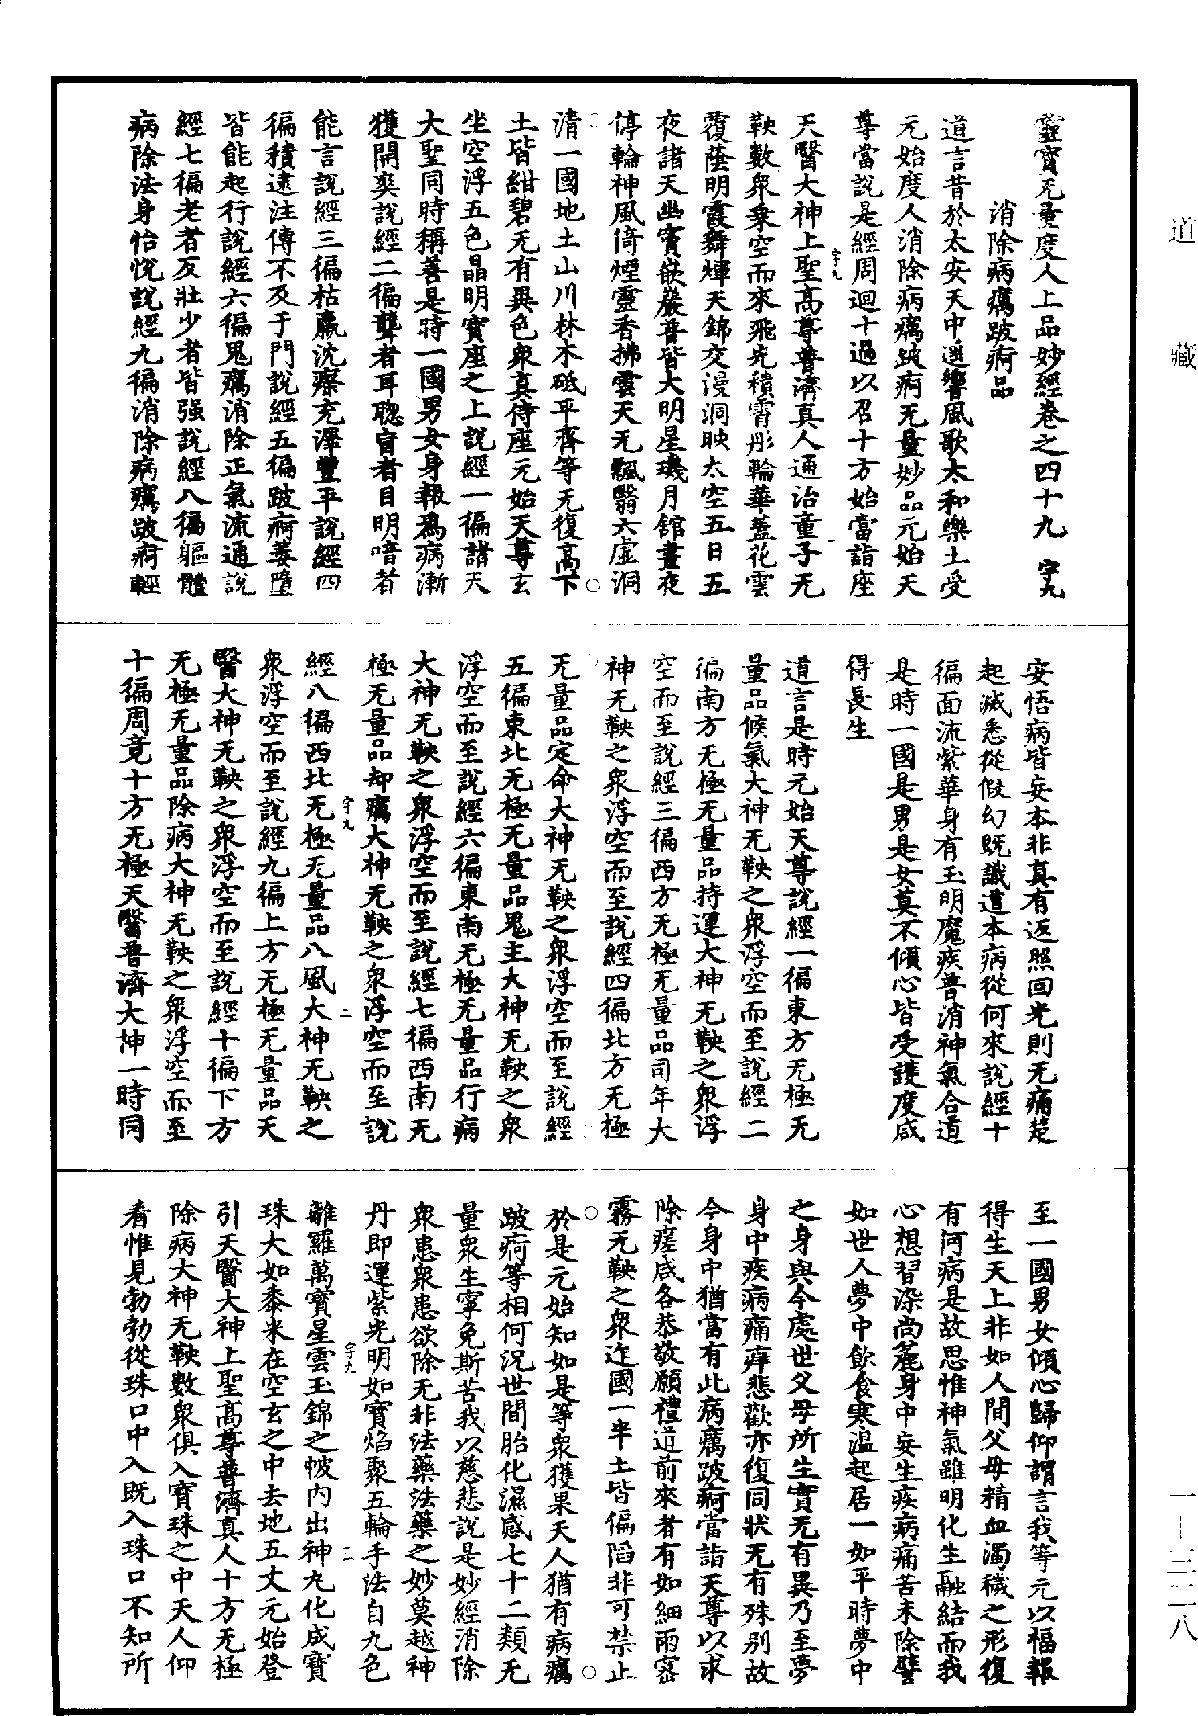 靈寶无量度人上品妙經卷之四十九 守九
消除病癘跛痾品
道言昔於太安天中遙響風歌太和樂土受
元始度人消除病癘跛痾无量妙品元始天
尊當說是經周迴十過以召十方始當詣座
天醫大神上聖高尊普濟真人通治童子无
鞅數眾乘空而來飛光積霄彤輪華蓋花雲
覆蔭明霞舞煇天錦交漫洞映太空五日五
夜諸天幽竇嵌巖普皆大明星璣月館晝夜
停輪神風倚煙靈香拂雲天无飄翳六虛洞
清一國地土山川林木砥平齊等无復高下
土皆紺碧无有異色眾真侍座元始天尊玄
坐空浮五色晶明寶座之上說經一徧諸天
大聖同時稱善是時一國男女身報為病漸
獲開爽說經二徧聾者耳聰盲者目明喑者
能言說經三徧枯羸沈瘵充澤豐平說經四
徧積逮注傳不及于門說經五徧跛痾萎墮
皆能起行說經六徧鬼癘消除正氣流通說
經七徧老者反壯少者皆強說經八徧軀體
病除法身怡悅說經九徧消除病癘跛痾輕
安悟病皆妄本非真有返照回光則无痛楚
起滅悉從假幻既識道本病從何來說經十
徧面流紫華身有玉明魔疾普消神氣合道
是時一國是男是女莫不傾心皆受護度咸
得長生
道言是時元始天尊說經一徧東方无極无
量品候氣大神无鞅之眾浮空而至說經二
徧南方无極无量品持運大神无鞅之眾浮
空而至說經三徧西方无極无量品司年大
神无鞅之眾浮空而至說經四徧北方无極
无量品定命大神无鞅之眾浮空而至說經
五徧東北无極无量品鬼主大神无鞅之眾
浮空而至說經六徧東南无極无量品行病
大神无鞅之眾浮空而至說經七徧西南无
極无量品却癘大神无鞅之眾浮空而至說
經八徧西北无極无量品八風大神无鞅之
眾浮空而至說經九徧上方无極无量品天
醫大神无鞅之眾浮空而至說經十徧下方
无極无量品除病大神无鞅之眾浮空而至
十徧周竟十方无極天醫普濟大神一時同
至一國男女傾心歸仰謂言我等元以福報
得生天上非如人間父母精血濁穢之形復
有何病是故思惟神氣雖明化生融結而我
心想習染尚麤身中妄生疾病痛苦未除譬
如世人夢中飲食寒溫起居一如平時夢中
之身與今處世父母所生實无有異乃至夢
身中疾病痛痒悲歡亦復同狀无有殊別故
今身中猶當有此病癘跛痾當詣天尊以求
除瘥咸各恭敬願禮道前來者有如細雨密
霧无鞅之眾迮國一半土皆偏陷非可禁止
於是元始知如是等眾獲果天人猶有病癘
跛痾等相何況世間胎化濕感七十二類无
量眾生寧免斯苦我以慈悲說是妙經消除
眾患眾患欲除无非法藥法藥之妙莫越神
丹即運紫光明如寶焰聚五輪手法自九色
離羅萬寶星雲玉錦之帔內出神丸化成寶
珠大如黍米在空玄之中去地五丈元始登
引天醫大神上聖高尊普濟真人十方无極
除病大神无鞅數眾俱入寶珠之中天人仰
看惟見勃勃從珠口中入既入珠口不知所
道
藏
一—三二八